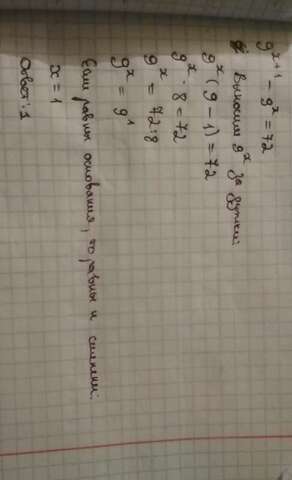 9^{x+1} - 9^x = 72
Выносим 9^x за скобки:
9^x (9 - 1) = 72
9^x · 8 = 72
9^x = 72:8
9^x = 9^1
Если равны основания, то равны и степени:
x = 1
Ответ: 1